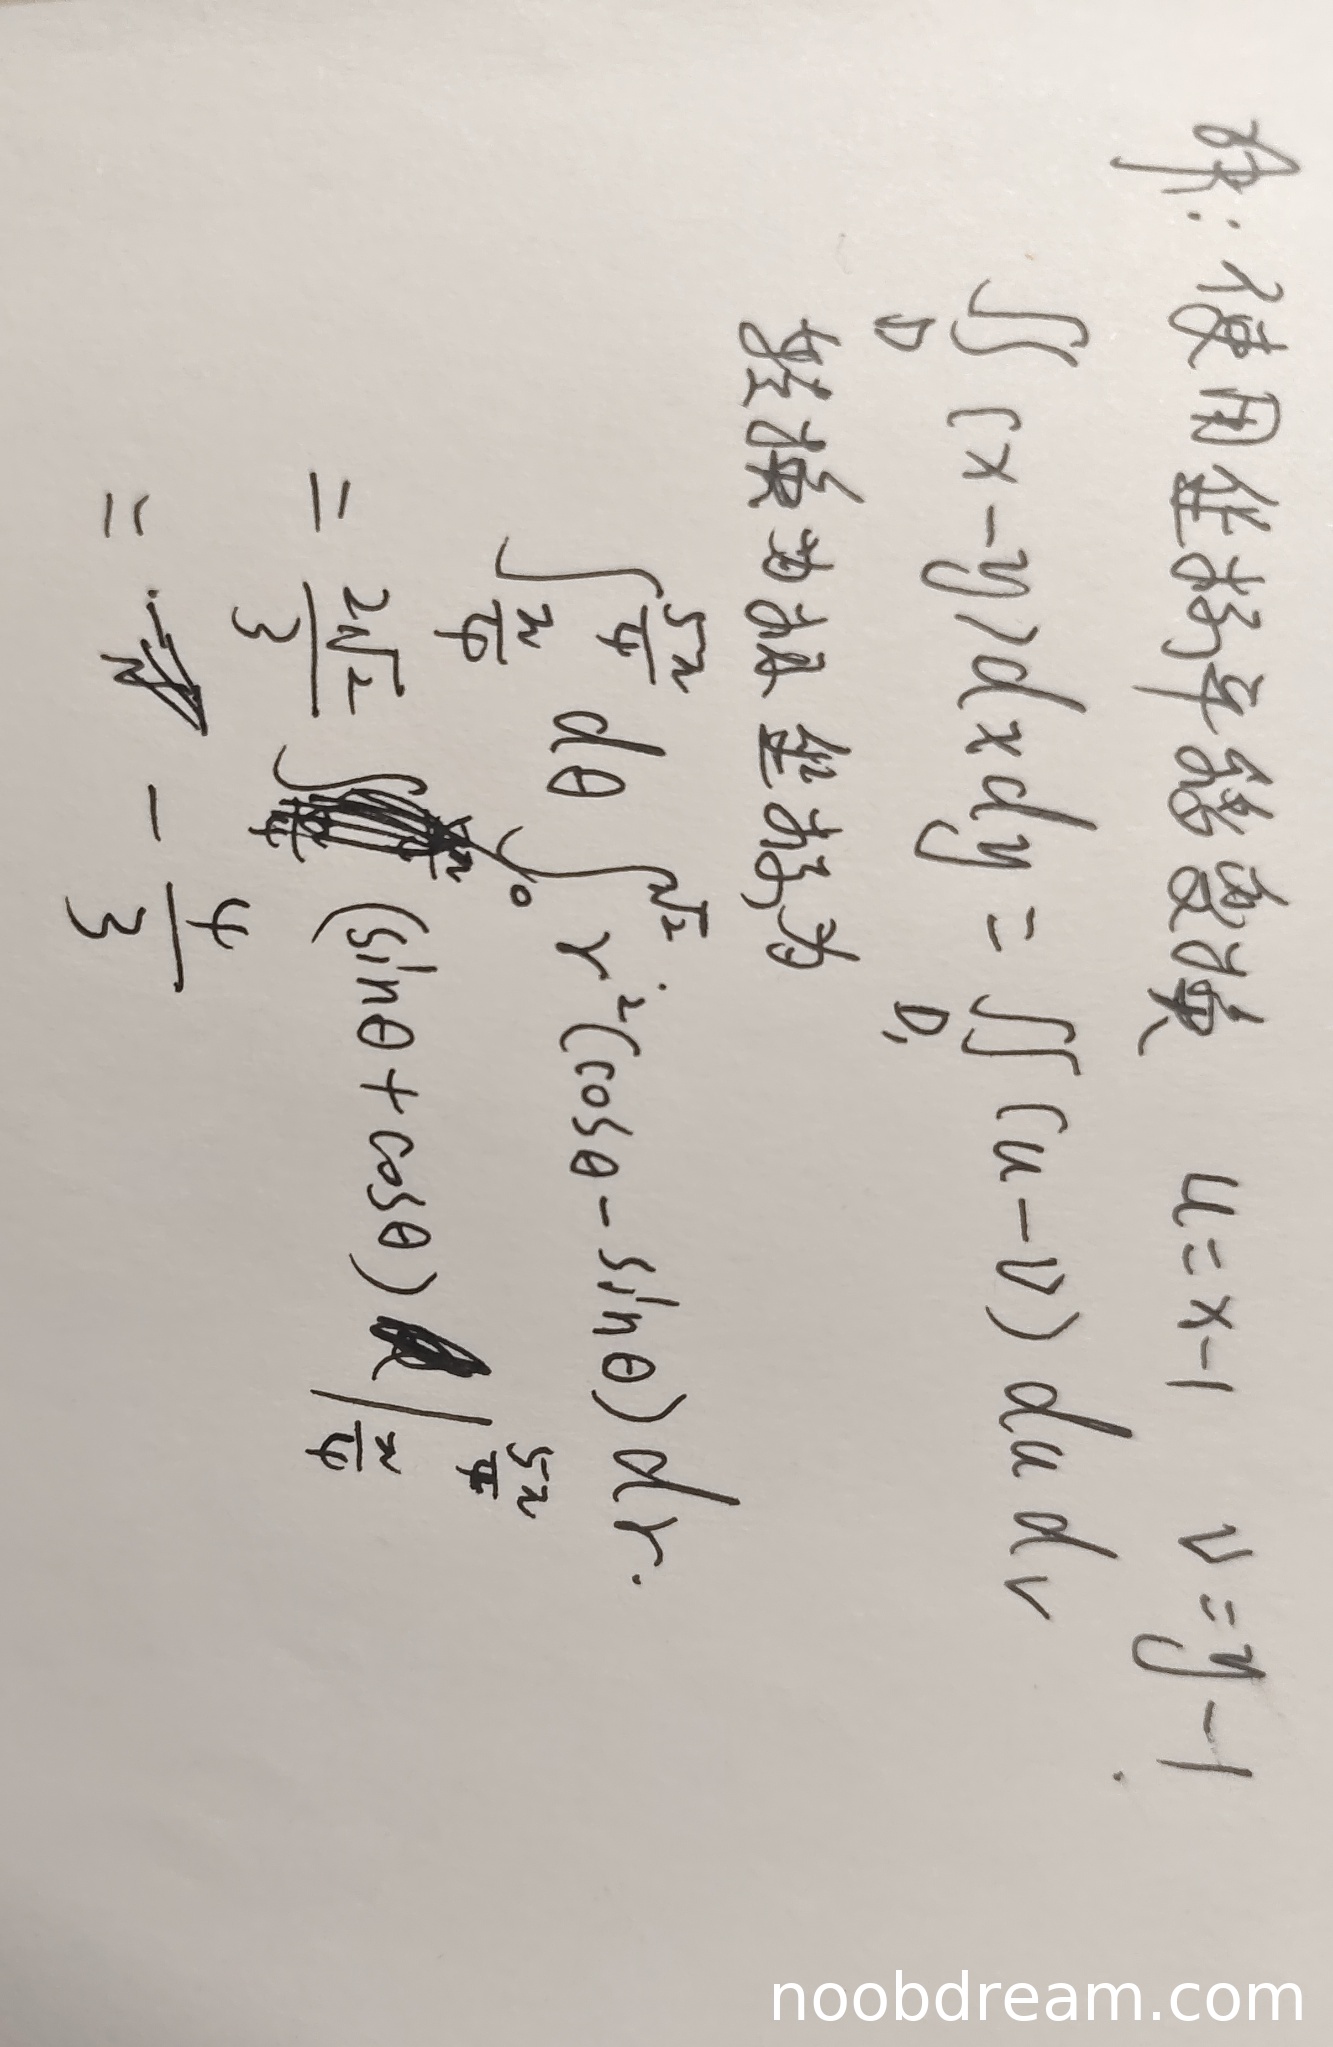 解: 使用坐标平移变换 u=x-1 v=y-1
∬_D (x-y)dxdy = ∬_{D_1} (u-v) du dv
转换为极坐标为
∫_{π/4}^{5π/4} dθ ∫_0^{√2} r²(cosθ - sinθ) dr.
= 2√2/3 (sinθ + cosθ) |_{π/4}^{5π/4}
= - 4/3
noobdream.com